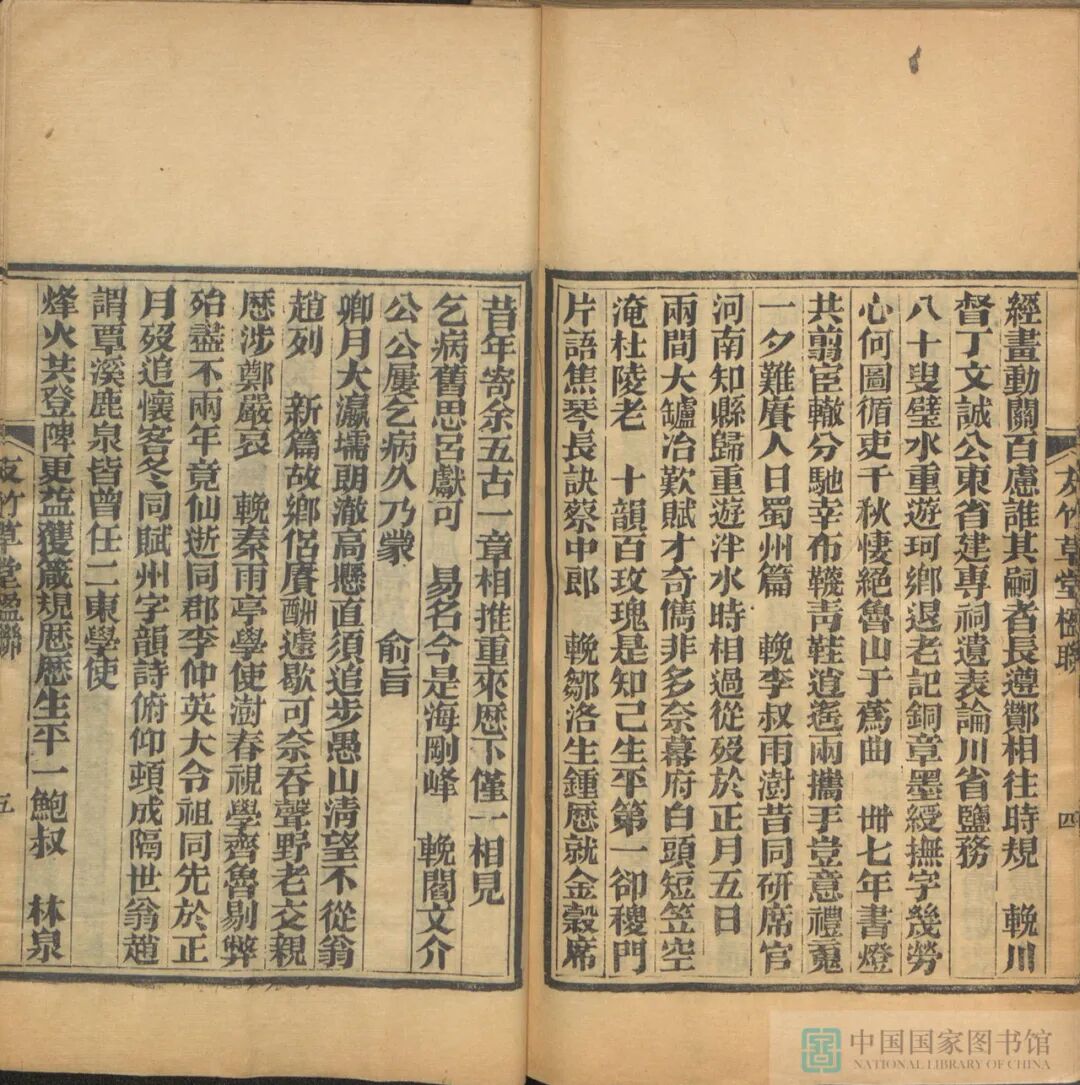 經畫動關百慮誰其嗣者長遵酇相往時規　輓川
督丁文誠公東省建專祠遺表論川省鹽務
八十叟璧水重遊珂鄉退老記銅章墨綬撫字幾勞
心何圖循吏千秋悽絕魯山于蔿曲　卌七年書燈
共翦宦轍分馳幸布韤靑鞋逍遙兩攜手豈意禮䰟
一夕難賡人日蜀州篇　輓李叔雨澍昔同研席官
河南知縣歸重遊泮水時相過從歿於正月五日
兩間大罏冶歎賦才奇儁非多奈幕府白頭短笠空
淹杜陵老　十韻百玫瑰是知己生平第一卻稷門
片語焦琴長訣蔡中郎　輓鄒洛生鍾歷就金穀席
友竹草堂楹聯
四
昔年寄余五古一章相推重來歷下僅一相見
乞病舊思呂獻可　易名今是海剛峰　輓閻文介
公公屢乞病久乃蒙　俞旨
卿月大瀛壖朗澈高懸直須追步愚山淸望不從翁
趙列　新篇故鄉侶賡酬遽歇可奈吞聲野老交親
歷涉鄭嚴哀　輓秦雨亭學使澍春視學齊魯剔弊
殆盡不兩年竟仙逝同郡李仲英大令祖同先於正
月歿追懷客冬同賦州字韻詩俯仰頓成隔世翁趙
謂覃溪鹿泉皆曾任二東學使
烽火共登陴更益獲箴規歷歷生平一鮑叔　林泉
友竹草堂楹聯
五
中国国家图书馆
NATIONAL LIBRARY OF CHINA